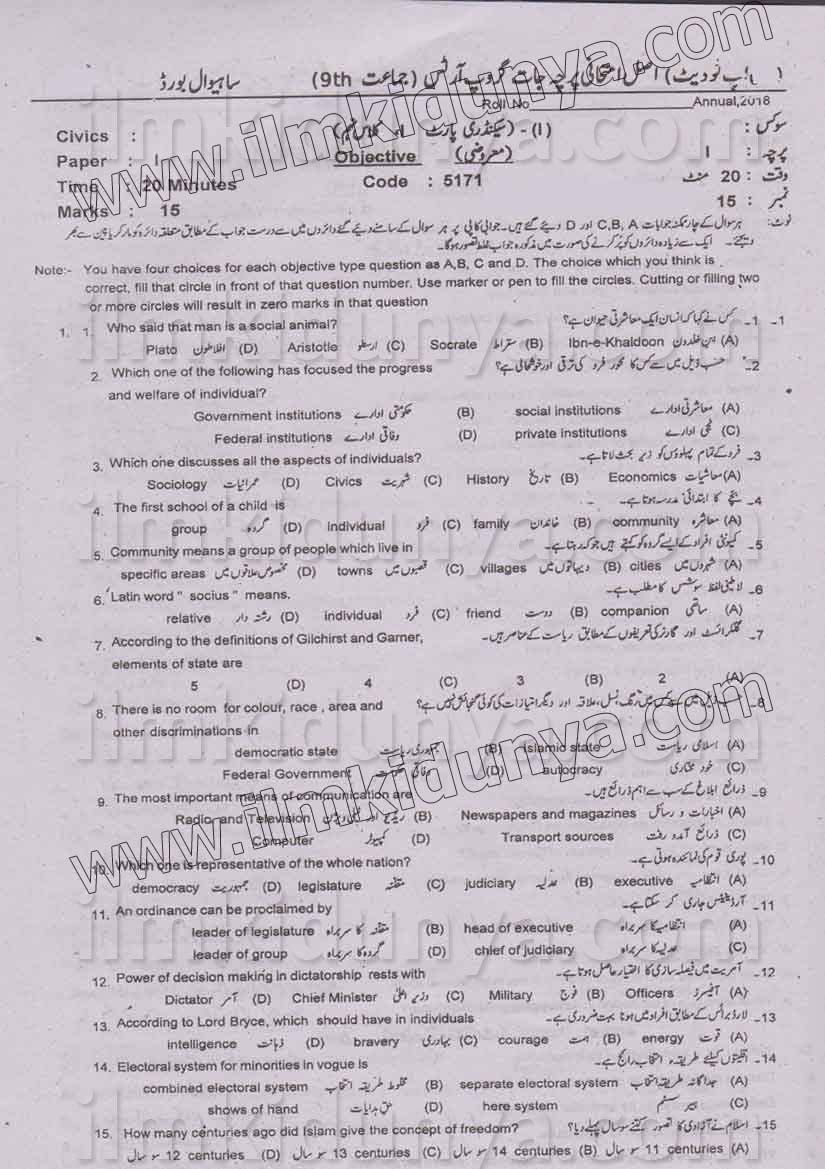 ساہیوال بورڈ (جماعت 9th) اصل انتخابی پرچہ جات گروپ آرٹس
Roll No Annual,2018
Civics : (I) - (سیکنڈری پارٹ سوکس :
Paper : I Objective (معروضی) I پرچہ :
Time : 20 Minutes Code : 5171 وقت : 20 منٹ
Marks : 15 نمبر : 15
نوٹ: ہر سوال کے چار ممکنہ جوابات C,B,A اور D دیئے گئے ہیں۔ جوابی کاپی پر ہر سوال کے سامنے دیئے گئے دائروں میں سے درست جواب کے مطابق متعلقہ دائرہ کو مارکر یا پین سے بھر
دیجئے۔ ایک سے زیادہ دائروں کو پُر کرنے کی صورت میں مذکورہ جواب غلط تصور ہوگا۔
Note:- You have four choices for each objective type question as A,B, C and D. The choice which you think is
correct, fill that circle in front of that question number. Use marker or pen to fill the circles. Cutting or filling two
or more circles will result in zero marks in that question
1. 1. Who said that man is a social animal? 1۔ 1۔ کس نے کہا کہ انسان ایک معاشرتی حیوان ہے؟
Plato افلاطون (D) Aristotle ارسطو (C) Socrate سقراط (B) Ibn-e-Khaldoon ابن خلدون (A)
2. Which one of the following has focused the progress 2۔ حسب ذیل میں سے کس کا محور فرد کی ترقی اور خوشحالی ہے؟
and welfare of individual?
Government institutions حکومتی ادارے (B) social institutions معاشرتی ادارے (A)
Federal institutions وفاقی ادارے (D) private institutions نجی ادارے (C)
3. Which one discusses all the aspects of individuals? 3۔ فرد کے تمام پہلوؤں کو زیر بحث لاتا ہے۔
Sociology عمرانیات (D) Civics شہریت (C) History تاریخ (B) Economics معاشیات (A)
4. The first school of a child is 4۔ بچے کا ابتدائی مدرسہ ہوتا ہے۔
group گروہ (D) individual فرد (C) family خاندان (B) community معاشرہ (A)
5. Community means a group of people which live in 5۔ کمیونٹی افراد کے ایسے گروہ کو کہتے ہیں جو کہ رہتا ہے۔
specific areas مخصوص علاقوں میں (D) towns قصبوں میں (C) villages دیہاتوں میں (B) cities شہروں میں (A)
6. Latin word " socius " means. 6۔ لاطینی لفظ سوشس کا مطلب ہے۔
relative رشتہ دار (D) individual فرد (C) friend دوست (B) companion ساتھی (A)
7. According to the definitions of Gilchirst and Garner, 7۔ گلکرائسٹ اور گارنر کی تعریفوں کے مطابق ریاست کے عناصر ہیں۔
elements of state are
5 (D) 4 (C) 3 (B) 2 (A)
8. There is no room for colour, race , area and 8۔ میں رنگ، نسل، علاقہ اور دیگر امتیازات کی کوئی گنجائش نہیں ہے؟
other discriminations in
democratic state جمہوری ریاست (B) Islamic state اسلامی ریاست (A)
Federal Government وفاقی حکومت (D) autocracy خود مختاری (C)
9. The most important means of communication are 9۔ ذرائع ابلاغ کے سب سے اہم ذرائع ہیں۔
Radio and Television ریڈیو اور ٹیلی ویژن (B) Newspapers and magazines اخبارات و رسائل (A)
Computer کمپیوٹر (D) Transport sources ذرائع آمدو رفت (C)
10. Which one is representative of the whole nation? 10۔ پوری قوم کی نمائندہ ہوتی ہے۔
democracy جمہوریت (D) legislature مقننہ (C) judiciary عدلیہ (B) executive انتظامیہ (A)
11. An ordinance can be proclaimed by 11۔ آرڈیننس جاری کر سکتا ہے۔
leader of legislature مقننہ کا سربراہ (B) head of executive انتظامیہ کا سربراہ (A)
leader of group گروہ کا سربراہ (D) chief of judiciary عدلیہ کا سربراہ (C)
12. Power of decision making in dictatorship rests with 12۔ آمریت میں فیصلہ سازی کا اختیار حاصل ہوتا ہے۔
Dictator آمر (D) Chief Minister وزیر اعلیٰ (C) Military فوج (B) Officers آفیسرز (A)
13. According to Lord Bryce, which should have in individuals 13۔ لارڈ برائس کے مطابق افراد میں ہونا بہت ضروری ہے۔
intelligence ذہانت (D) bravery بہادری (C) courage ہمت (B) energy قوت (A)
14. Electoral system for minorities in vogue is 14۔ اقلیتوں کیلئے طریقہ انتخاب رائج ہے۔
combined electoral system مخلوط طریقہ انتخاب (B) separate electoral system جداگانہ طریقہ انتخاب (A)
shows of hand (D) here system ہیئر سسٹم (C)
15. How many centuries ago did Islam give the concept of freedom? 15۔ اسلام نے آزادی کا تصور کتنے سو سال پہلے دیا؟
12 centuries سو سال (D) 13 centuries سو سال (C) 14 centuries سو سال (B) 11 centuries سو سال (A)
www.ilmkidunya.com
www.ilmkidunya.com
ilmkidunya.com